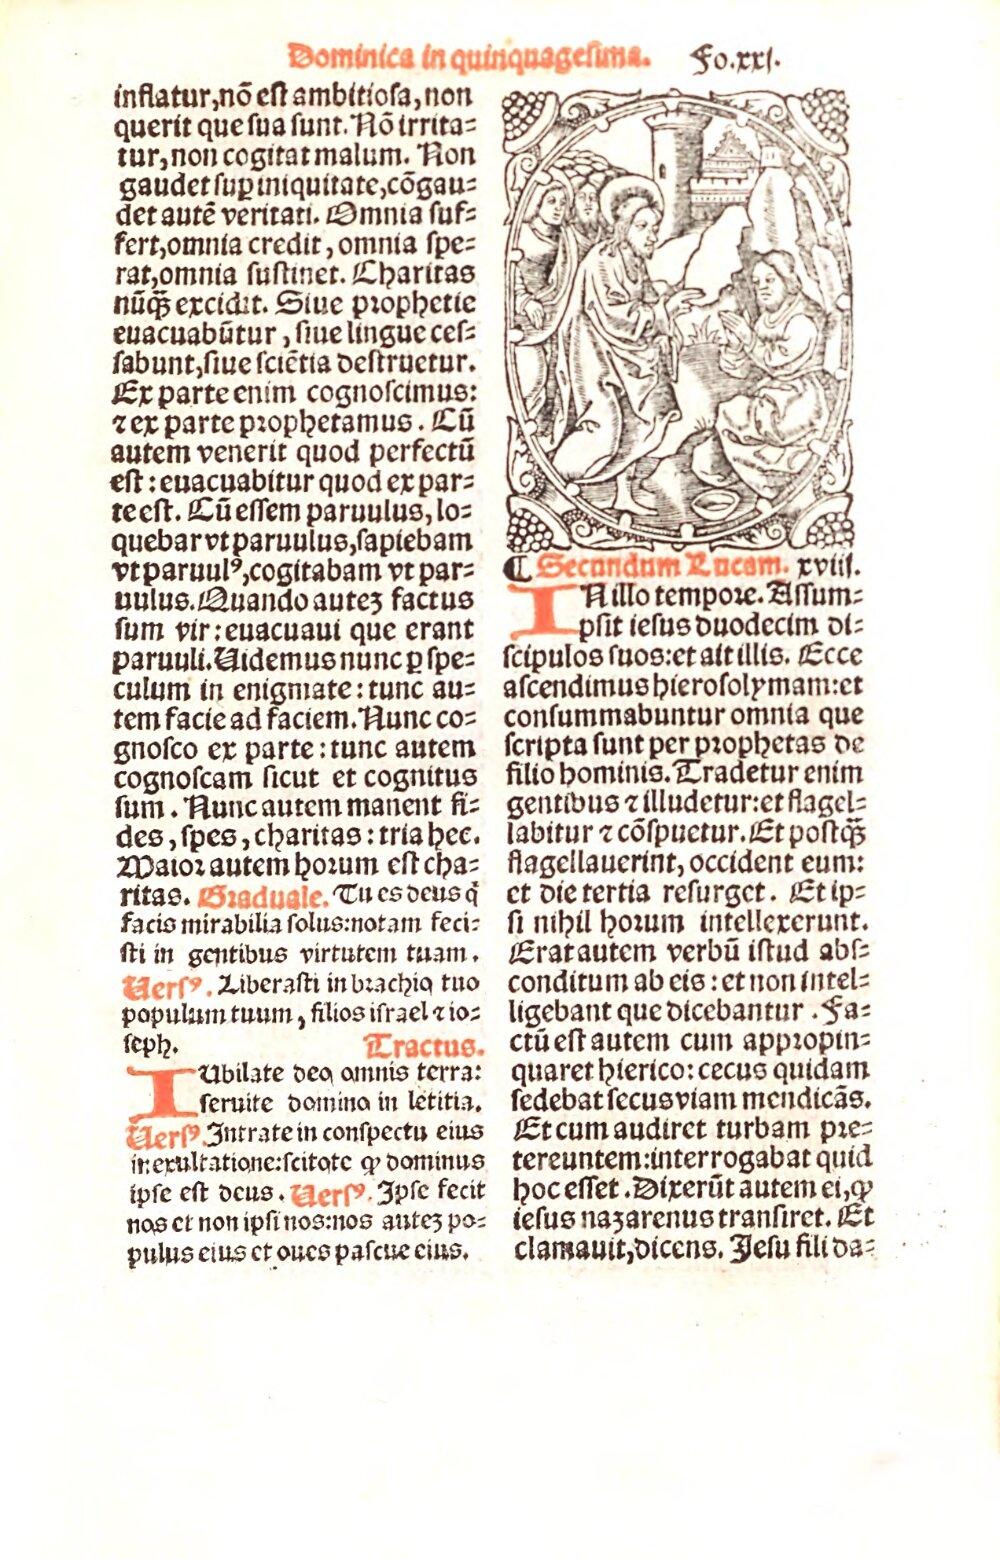 Dominica in quinquagesima. Fo.xxj.
inflatur,nō est ambitiosa,non
querit que sua sunt. Nō irrita⸗
tur,non cogitat malum. Non
gaudet suꝑ iniquitate,cōgau⸗
det autē veritati. Omnia suf⸗
fert,omnia credit, omnia spe⸗
rat,omnia sustinet. Charitas
nūq̄ꝫ excidit. Siue prophetie
euacuabūtur, siue lingue ces⸗
sabunt,siue sciētia destruetur.
Ex parte enim cognoscimus:
⁊ ex parte prophetamus. Cū
autem venerit quod perfectū
est: euacuabitur quod ex par⸗
te est. Cū essem paruulus, lo⸗
quebar vt paruulus,sapiebam
vt paruulꝰ,cogitabam vt par⸗
uulus. Quando auteꝫ factus
sum vir: euacuaui que erant
paruuli. Uidemus nunc ꝑ spe⸗
culum in enigmate: tunc au⸗
tem facie ad faciem. Nunc co⸗
gnosco ex parte: tunc autem
cognoscam sicut et cognitus
sum. Nunc autem manent fi⸗
des, spes, charitas: tria hec.
Maior autem horum est cha⸗
ritas. Graduale. Tu es deus q̄
facis mirabilia solus:notam feci⸗
sti in gentibus virtutem tuam.
Uersꝰ. Liberasti in brachio tuo
populum tuum, filios israel ⁊ io⸗
seph. Tractus.
IUbilate deo omnis terra:
seruite domino in letitia.
Uersꝰ. Intrate in conspectu eius
in exultatione:scitote ꝙ dominus
ipse est deus. Uersꝰ. Ipse fecit
nos et non ipsi nos:nos auteꝫ po⸗
pulus eius et oues pascue eius.
¶ Secundum Lucam. xviij.
IN illo tempore. Assum⸗
psit iesus duodecim di⸗
scipulos suos:et ait illis. Ecce
ascendimus hierosolymam:et
consummabuntur omnia que
scripta sunt per prophetas de
filio hominis. Tradetur enim
gentibus ⁊ illudetur:et flagel⸗
labitur ⁊ cōspuetur. Et postq̄ꝫ
flagellauerint, occident eum:
et die tertia resurget. Et ip⸗
si nihil horum intellexerunt.
Erat autem verbū istud abs⸗
conditum ab eis: et non intel⸗
ligebant que dicebantur. Fa⸗
ctū est autem cum appropin⸗
quaret hierico: cecus quidam
sedebat secus viam mendicās.
Et cum audiret turbam pre⸗
tereuntem:interrogabat quid
hoc esset. Dixerūt autem ei,ꝙ
iesus naꝫarenus transiret. Et
clamauit,dicens. Jesu fili da⸗